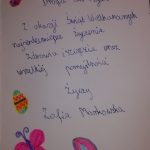 Z okazji Świąt Wielkanocnych
najserdeczniejsze życzenia
Zdrowia, szczęścia oraz
wszelkiej pomyślności
Życzy
Zofia Markowska